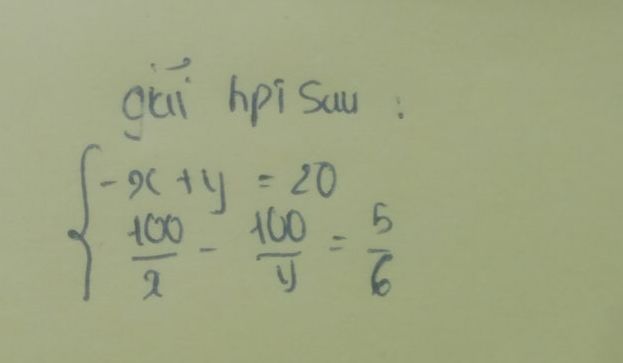 giải hpt sau :
-x + y = 20
100/x - 100/y = 5/6